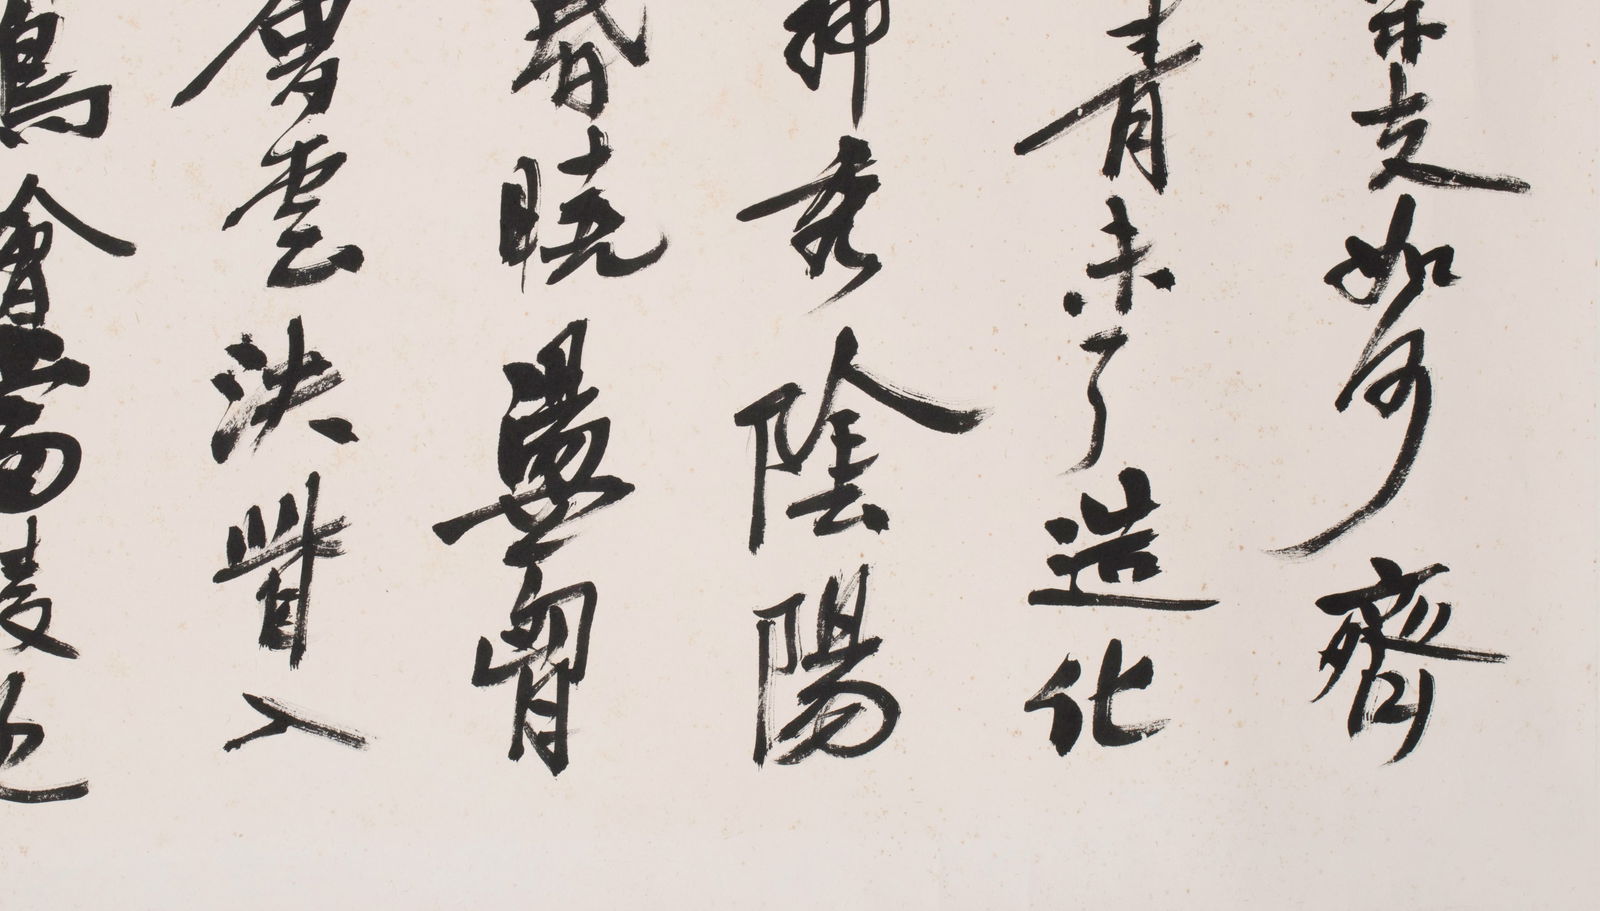 宗夫如何齊
青未了造化
神秀陰陽
昏曉盪胷
曾雲決眥入
鳥會當凌絕